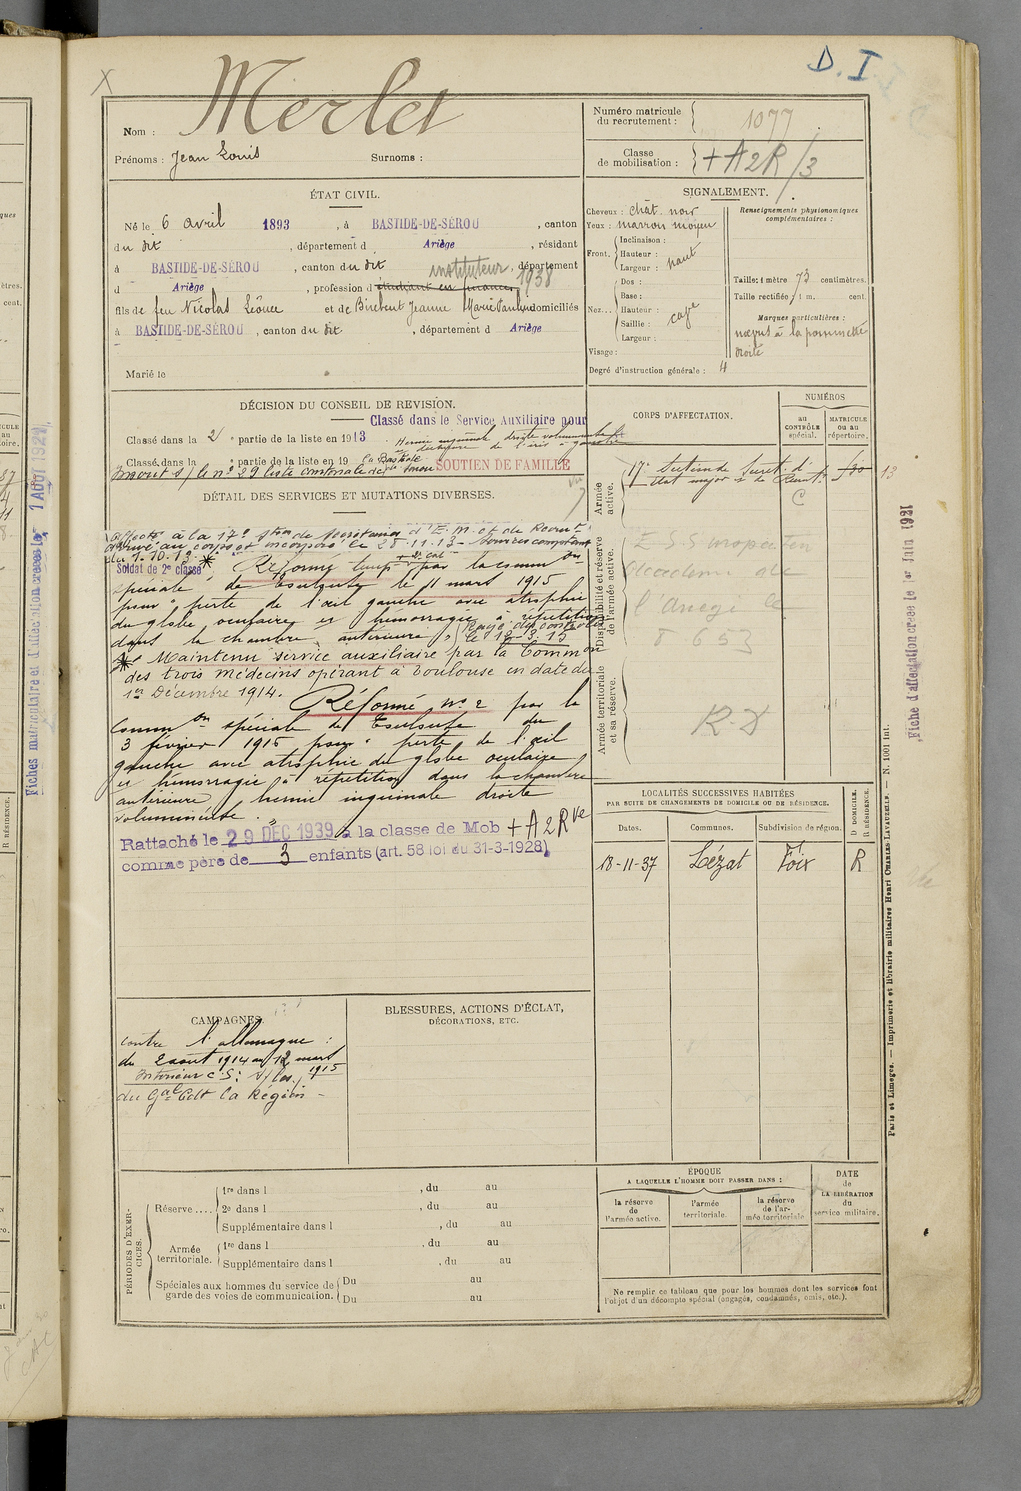 D. I
Nom : Merlet
Prénoms : Jean Louis Surnoms :
Numéro matricule du recrutement : 1077
Classe de mobilisation : +A2R/3
ÉTAT CIVIL.
Né le 6 avril 1893, à BASTIDE-DE-SÉROU, canton
du dit, département d Ariège, résidant
à BASTIDE-DE-SÉROU, canton du dit, département
instituteur 1938
d Ariège, profession d étudiant en
fils de feu Nicolas et de Jeanne domiciliés
à BASTIDE-DE-SÉROU, canton du dit, département d Ariège
Marié le
SIGNALEMENT.
Cheveux : chât. noir
Yeux : marron moyen
Front. Inclinaison :
Hauteur :
Largeur : haut
Nez... Dos :
Base :
Hauteur :
Saillie : cave
Largeur :
Visage :
Degré d'instruction générale : 4
Renseignements physionomiques complémentaires :
Taille : 1 mètre 73 centimètres.
Taille rectifiée : 1 m. cent.
Marques particulières :
nævus à la pommette
droite
DÉCISION DU CONSEIL DE REVISION.
Classé dans le Service Auxiliaire pour
Classé dans la 2e partie de la liste en 1913
Hernie inguinale droite volumineuse
Classé dans la e partie de la liste en 19
SOUTIEN DE FAMILLE
DÉTAIL DES SERVICES ET MUTATIONS DIVERSES.
Affecté à la 17e Son de Secrétaires d'E. M. et de Recrutt
Arrivé au corps et incorporé le 28.11.13
du 1.10.13
Soldat de 2e classe
Réformé temp. par la commion
spéciale de Toulouse le 11 mars 1915
pour perte de l'œil gauche avec atrophie
du globe oculaire et hémorragie à répétition
dans la chambre antérieure
Rayé des contrôles
le 12.3.15
Maintenu service auxiliaire par la Common
des trois médecins opérant à Toulouse en date du
1er Décembre 1914.
Réformé no 2 par la
Commion spéciale de Toulouse du
3 février 1916 pour perte de l'œil
gauche avec atrophie du globe oculaire
et hémorragie à répétition dans la chambre
antérieure, hernie inguinale droite
volumineuse.
Rattaché le 29 DEC 1939 à la classe de Mob + A2Rve
comme père de 3 enfants (art. 58 loi du 31-3-1928)
CORPS D'AFFECTATION.
NUMÉROS
au CONTRÔLE spécial.
MATRICULE OU au répertoire.
Armée active.
Disponibilité et réserve de l'armée active.
Inspection
Académie de
l'Ariège
Armée territoriale et sa réserve.
R.D
LOCALITÉS SUCCESSIVES HABITÉES
PAR SUITE DE CHANGEMENTS DE DOMICILE OU DE RÉSIDENCE.
Dates. Communes. Subdivision de région. D DOMICILE. R RÉSIDENCE.
18-11-37 Lézat Foix R
CAMPAGNES.
Contre l'allemagne :
du 2 août 1914 au 12 mars
1915
Intérieur C.S :
BLESSURES, ACTIONS D'ÉCLAT,
DÉCORATIONS, ETC.
PÉRIODES D'EXERCICES.
Réserve....
1re dans l , du au
2e dans l , du au
Supplémentaire dans l , du au
Armée territoriale.
1re dans l , du au
Supplémentaire dans l , du au
Spéciales aux hommes du service de garde des voies de communication.
Du au
Du au
ÉPOQUE
A LAQUELLE L'HOMME DOIT PASSER DANS :
la réserve de l'armée active.
l'armée territoriale.
la réserve de l'armée territoriale.
DATE de LA LIBÉRATION du service militaire.
Ne remplir ce tableau que pour les hommes dont les services font
l'objet d'un décompte spécial (engagés, condamnés, omis, etc.).
Paris et Limoges. — Imprimerie et librairie militaires Henri CHARLES-LAVAUZELLE. — N. 1001 int.
Fiche d'affectation créée le 1er Juin 1921
Fiches matriculaire et d'affectation créées le 1 AOUT 1921